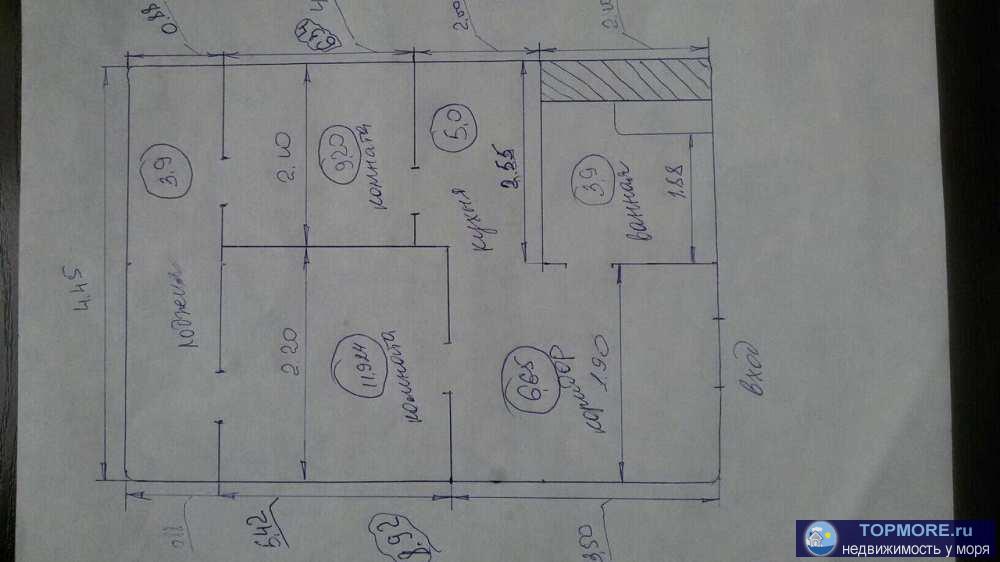 0.88
2.00
4.45
3.9
лоджия
2.10
9.20
комната
5,0
кухня
2.55
3.9
ванная
1.88
2.20
11,924
комната
6,65
коридор
1.90
вход
5,42
8.92
3,50
TOPMORE.ru
недвижимость у моря